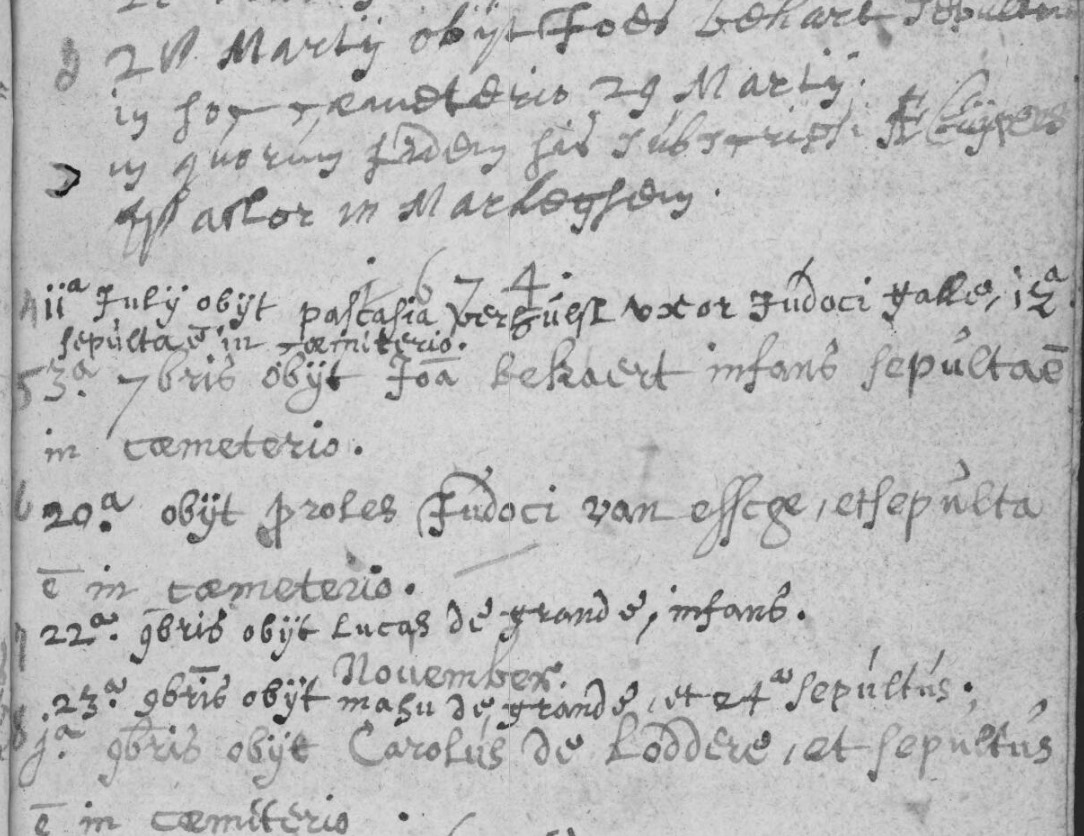 28 Martij obijt Joēs bekart sepultus
in hoc cæmeterio 29 Martij.
in quorum fidem his subscripsi
Pastor in Markeghem.
1674.
4 iiª Julij obijt pascasia verhulst uxor Judoci galle, i2ª
sepulta ē in cæmiterio.
5 3ª 7bris obijt Joā bekaert infans sepulta ē
in cæmeterio.
6 20ª. obijt proles Judoci van essche, et sepulta
ē in cæmeterio.
7 22ª. 9bris obijt Lucas de grande, infans.
November.
8 .23ª 9bris obijt mahu de grande, et 24ª sepultus.
jª. 9bris obijt Carolus de Loddere, et sepultus
ē in cæmiterio.